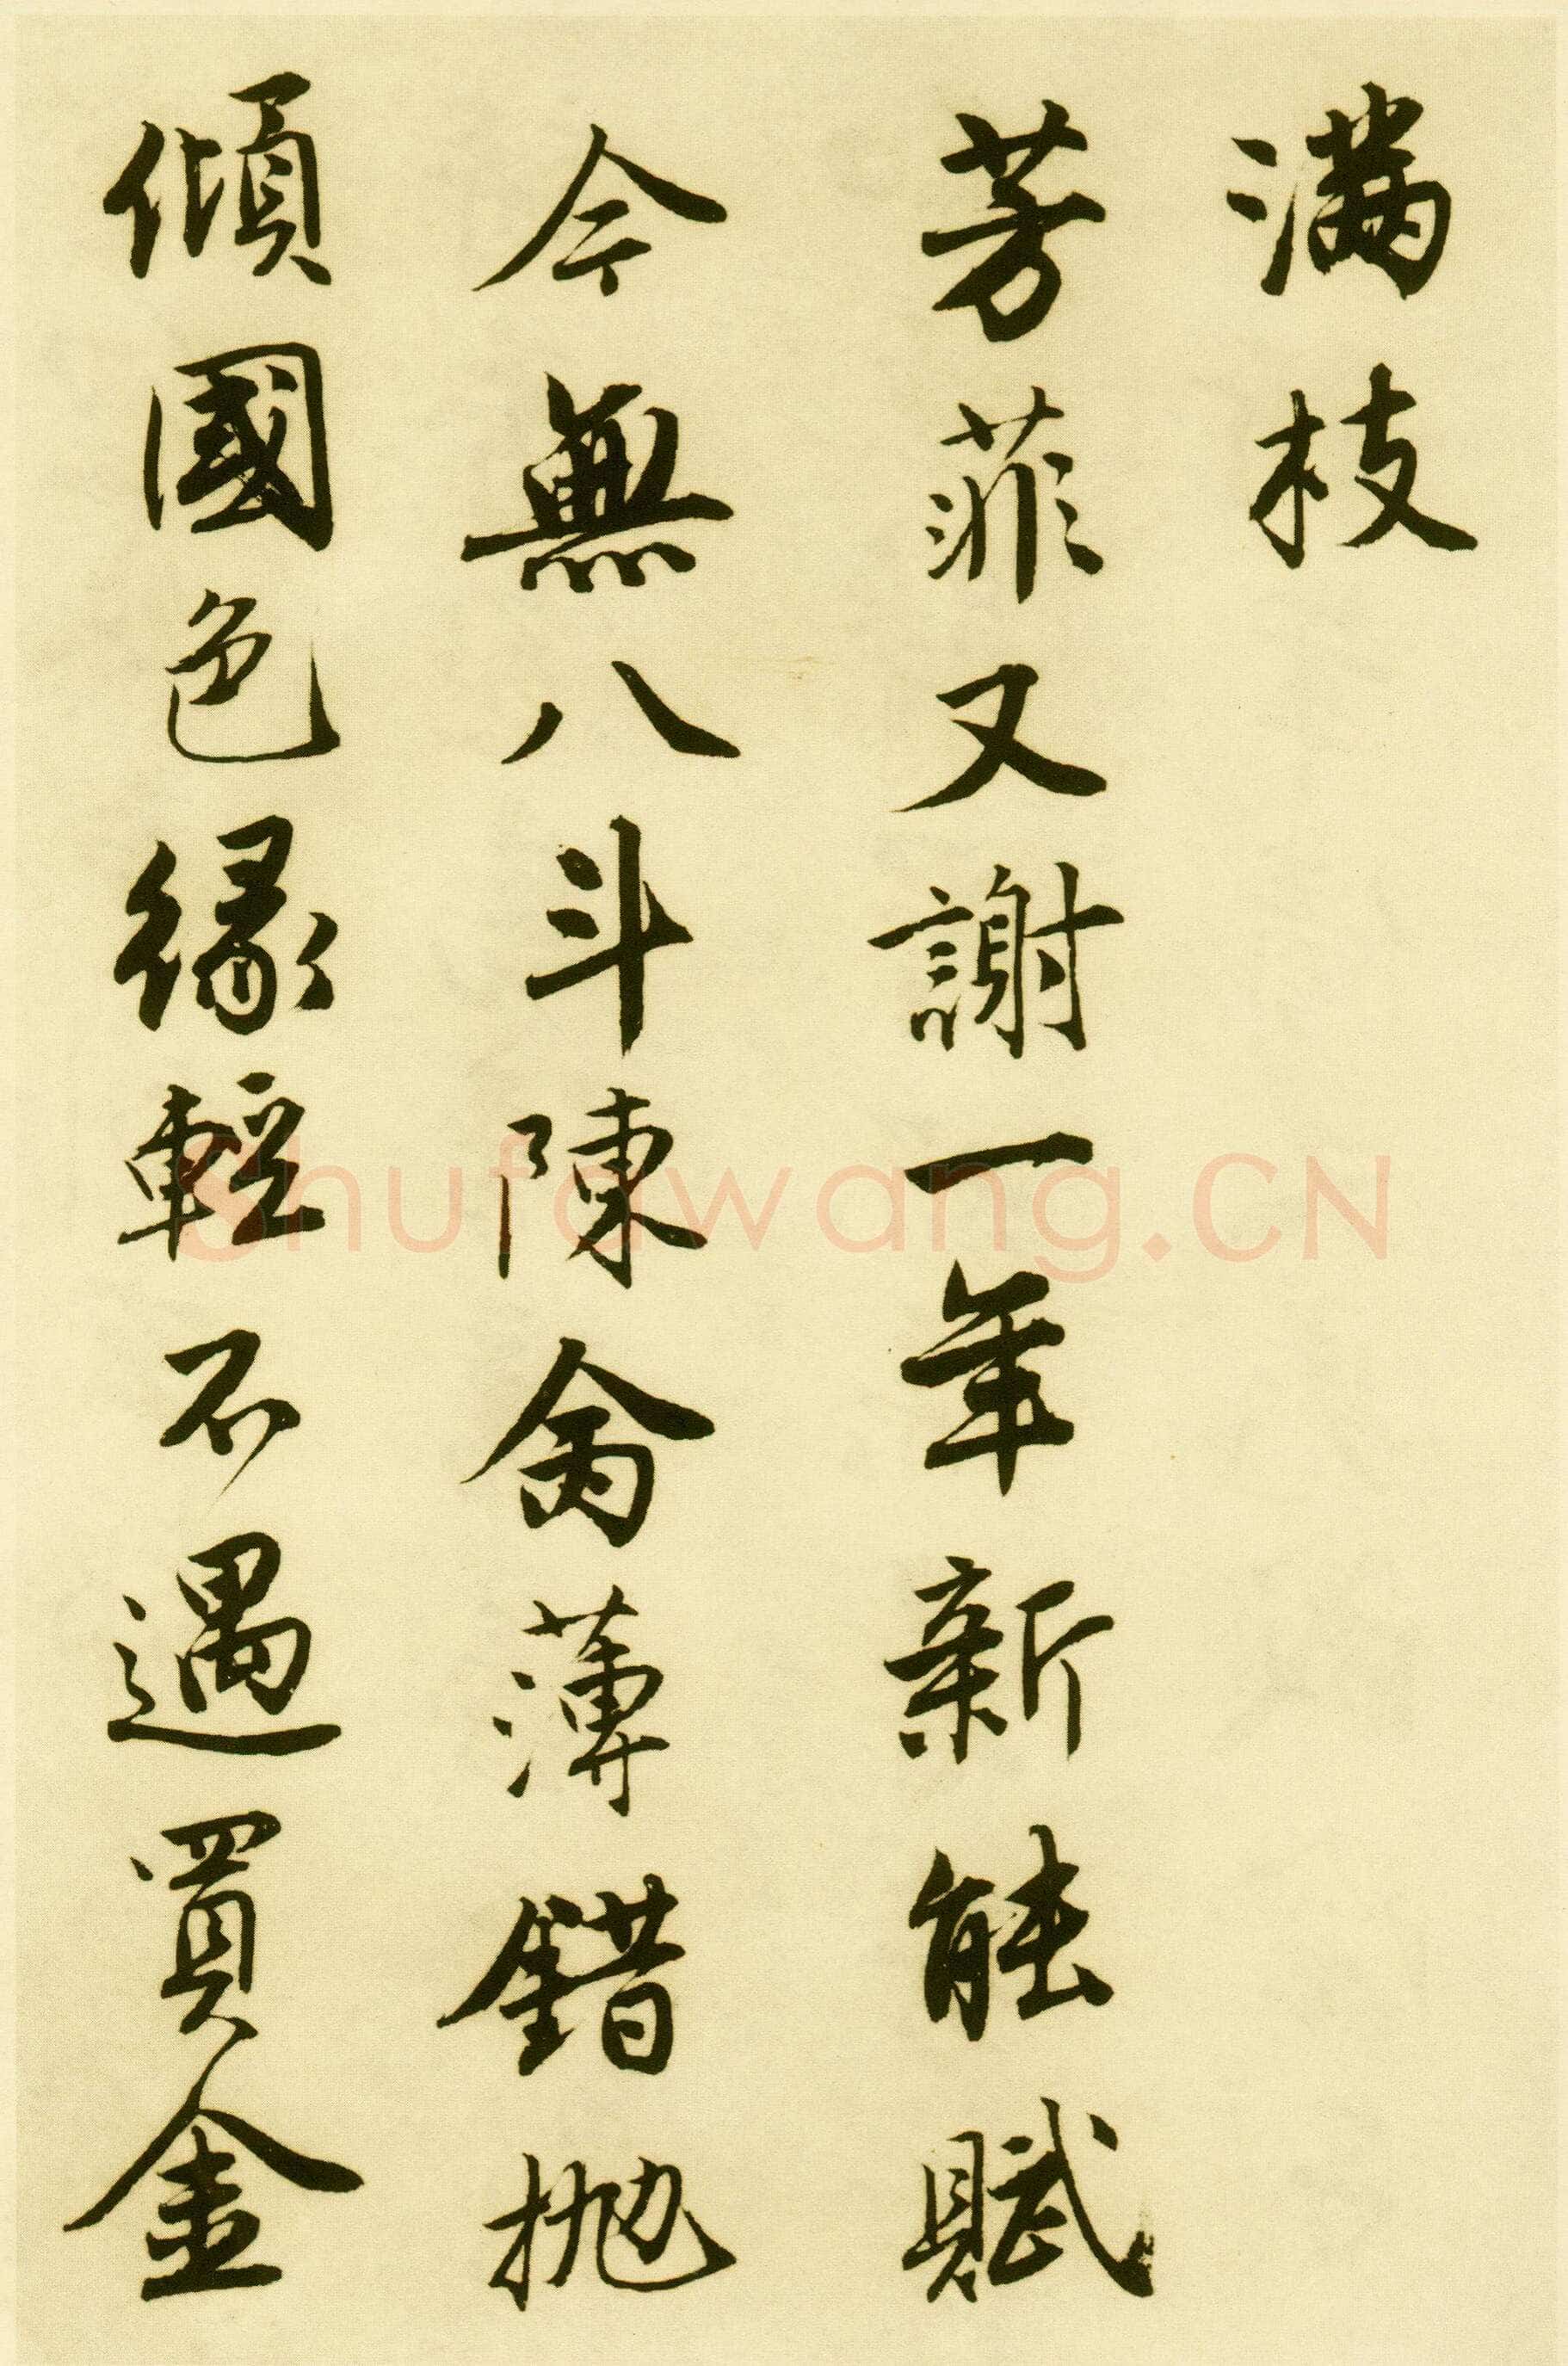 滿枝
芳菲又謝一年新能賦
今無八斗陳禽薄錯抛
傾國色緣輕不遇買金
Shufawang.CN